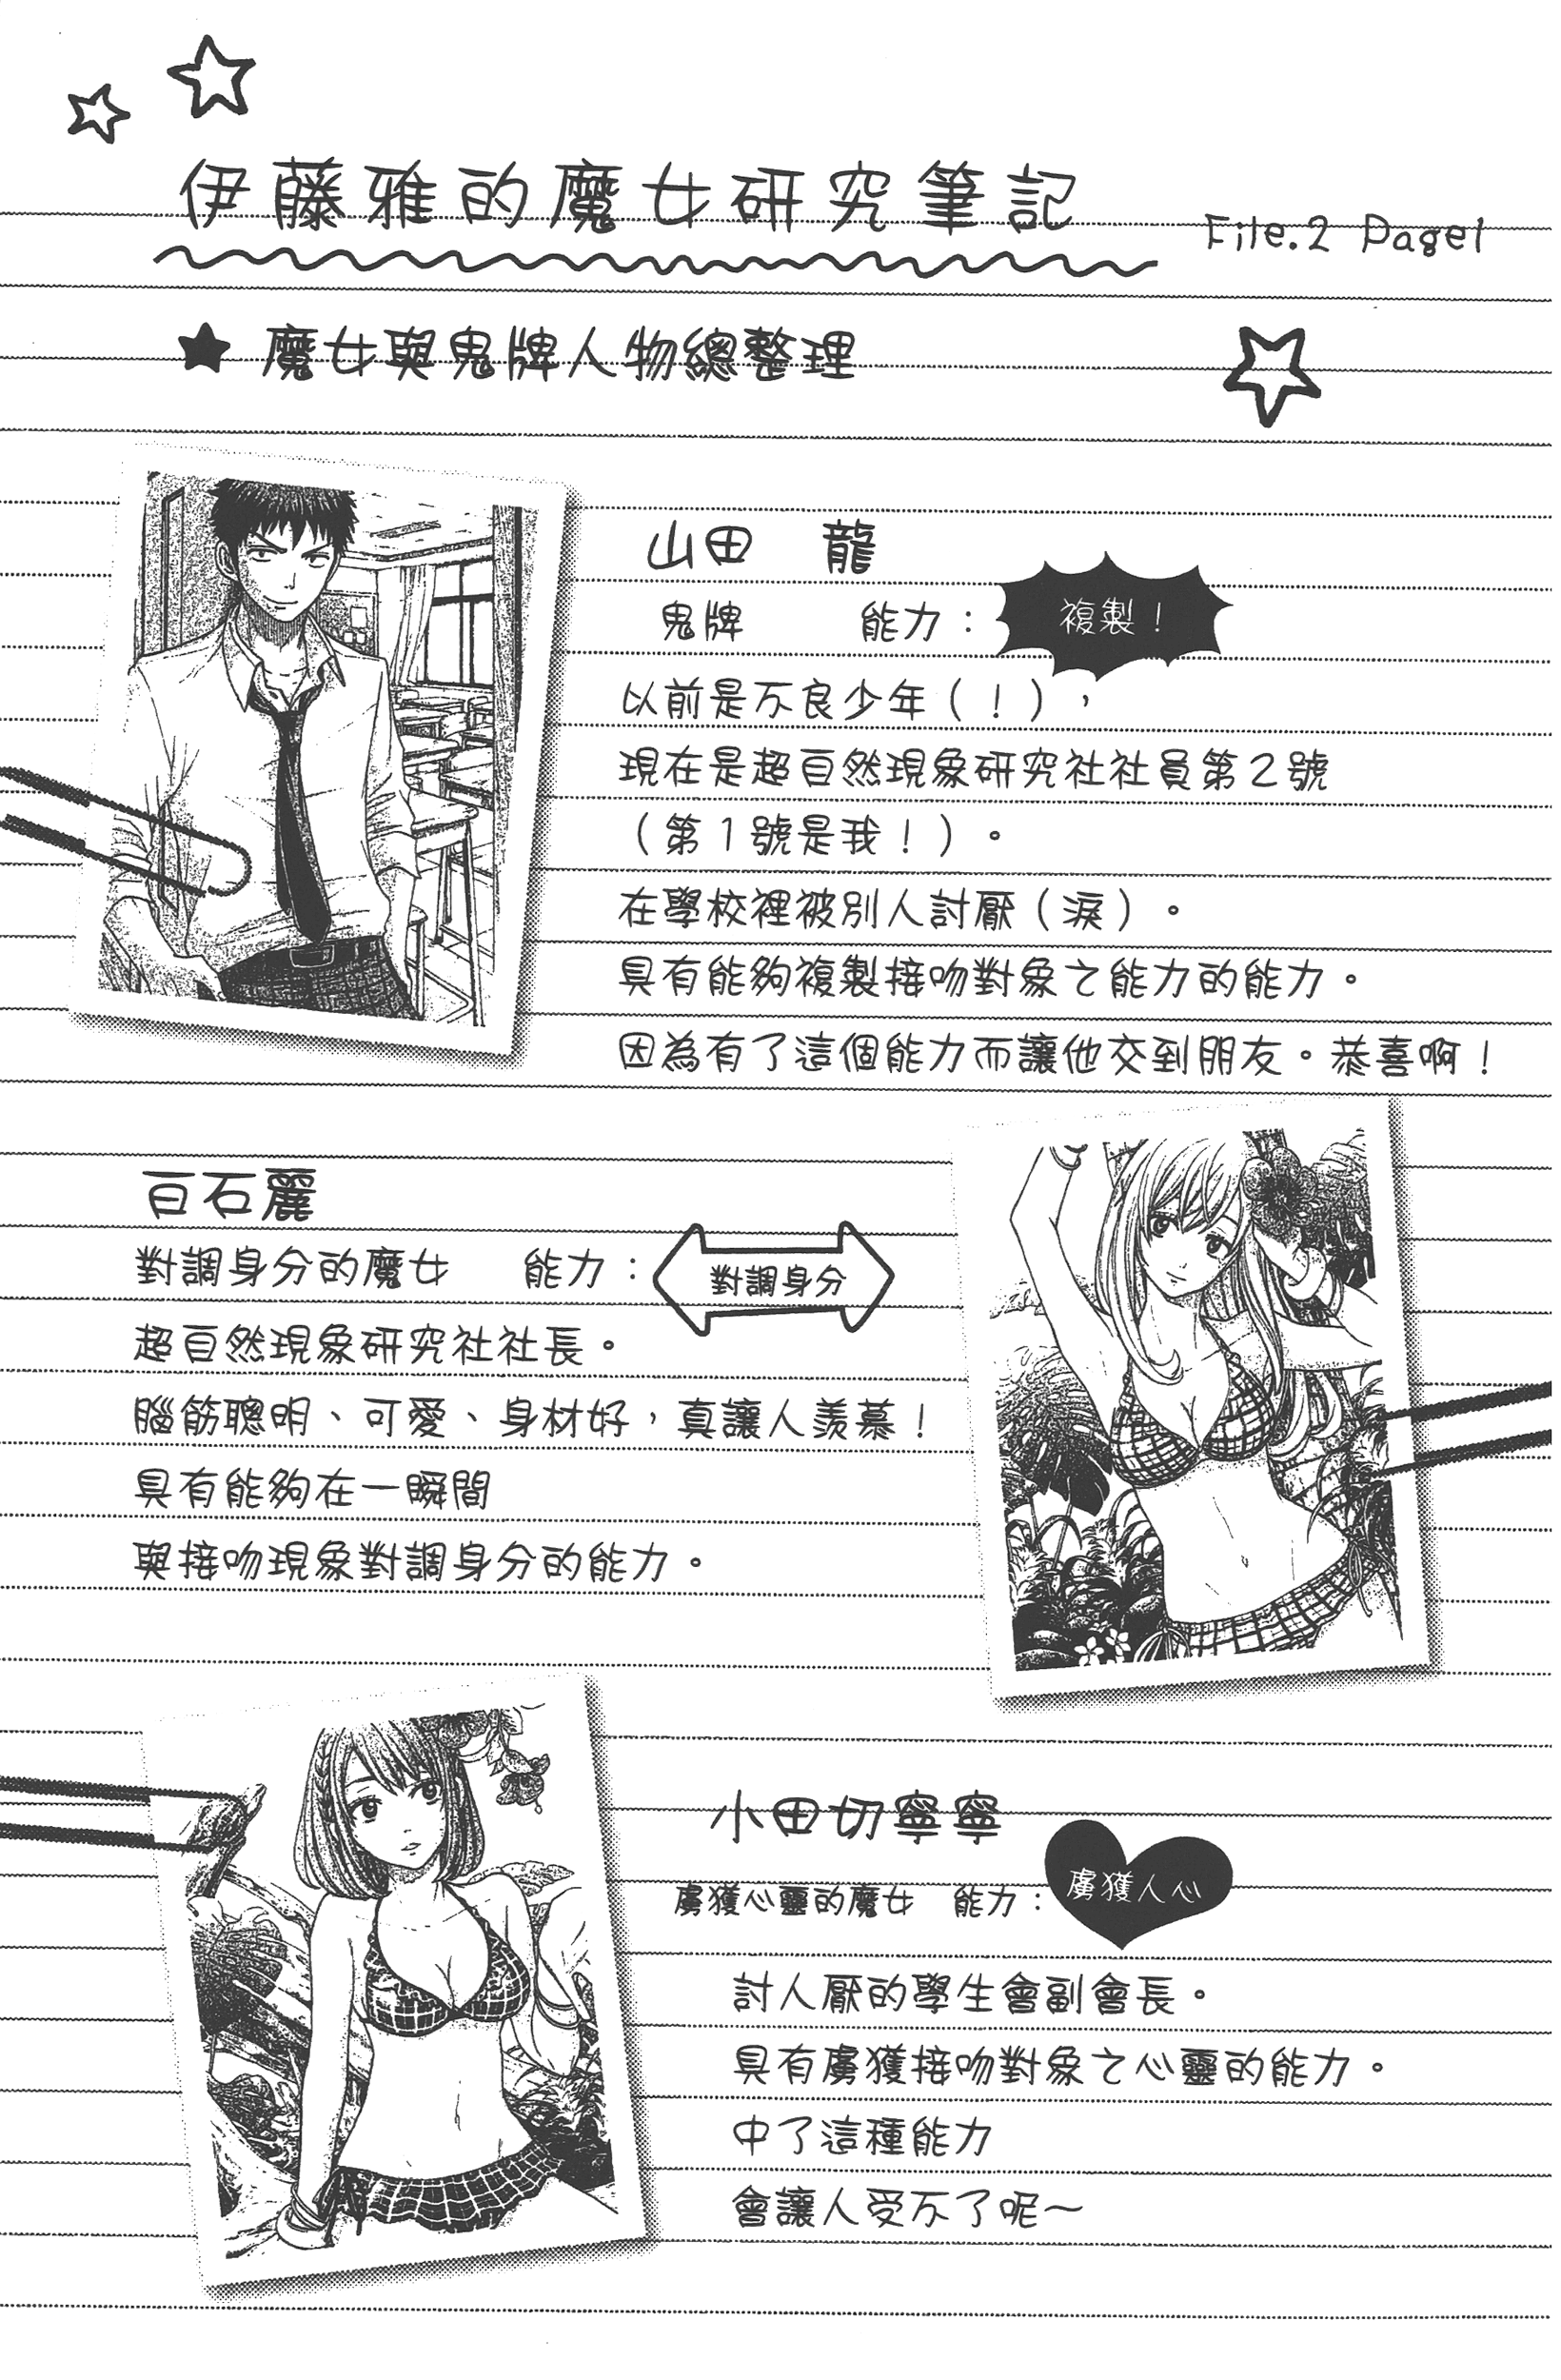 伊藤雅的魔女研究筆記
File.2 Page1
★ 魔女與鬼牌人物總整理
山田 龍
鬼牌 能力：複製！
以前是不良少年（！），
現在是超自然現象研究社社員第2號
（第1號是我！）。
在學校裡被別人討厭（淚）。
具有能夠複製接吻對象之能力的能力。
因為有了這個能力而讓他交到朋友。恭喜啊！
白石麗
對調身分的魔女 能力：對調身分
超自然現象研究社社長。
腦筋聰明、可愛、身材好，真讓人羨慕！
具有能夠在一瞬間
與接吻現象對調身分的能力。
小田切寧寧
虜獲心靈的魔女 能力：虜獲人心
討人厭的學生會副會長。
具有虜獲接吻對象之心靈的能力。
中了這種能力
會讓人受不了呢～